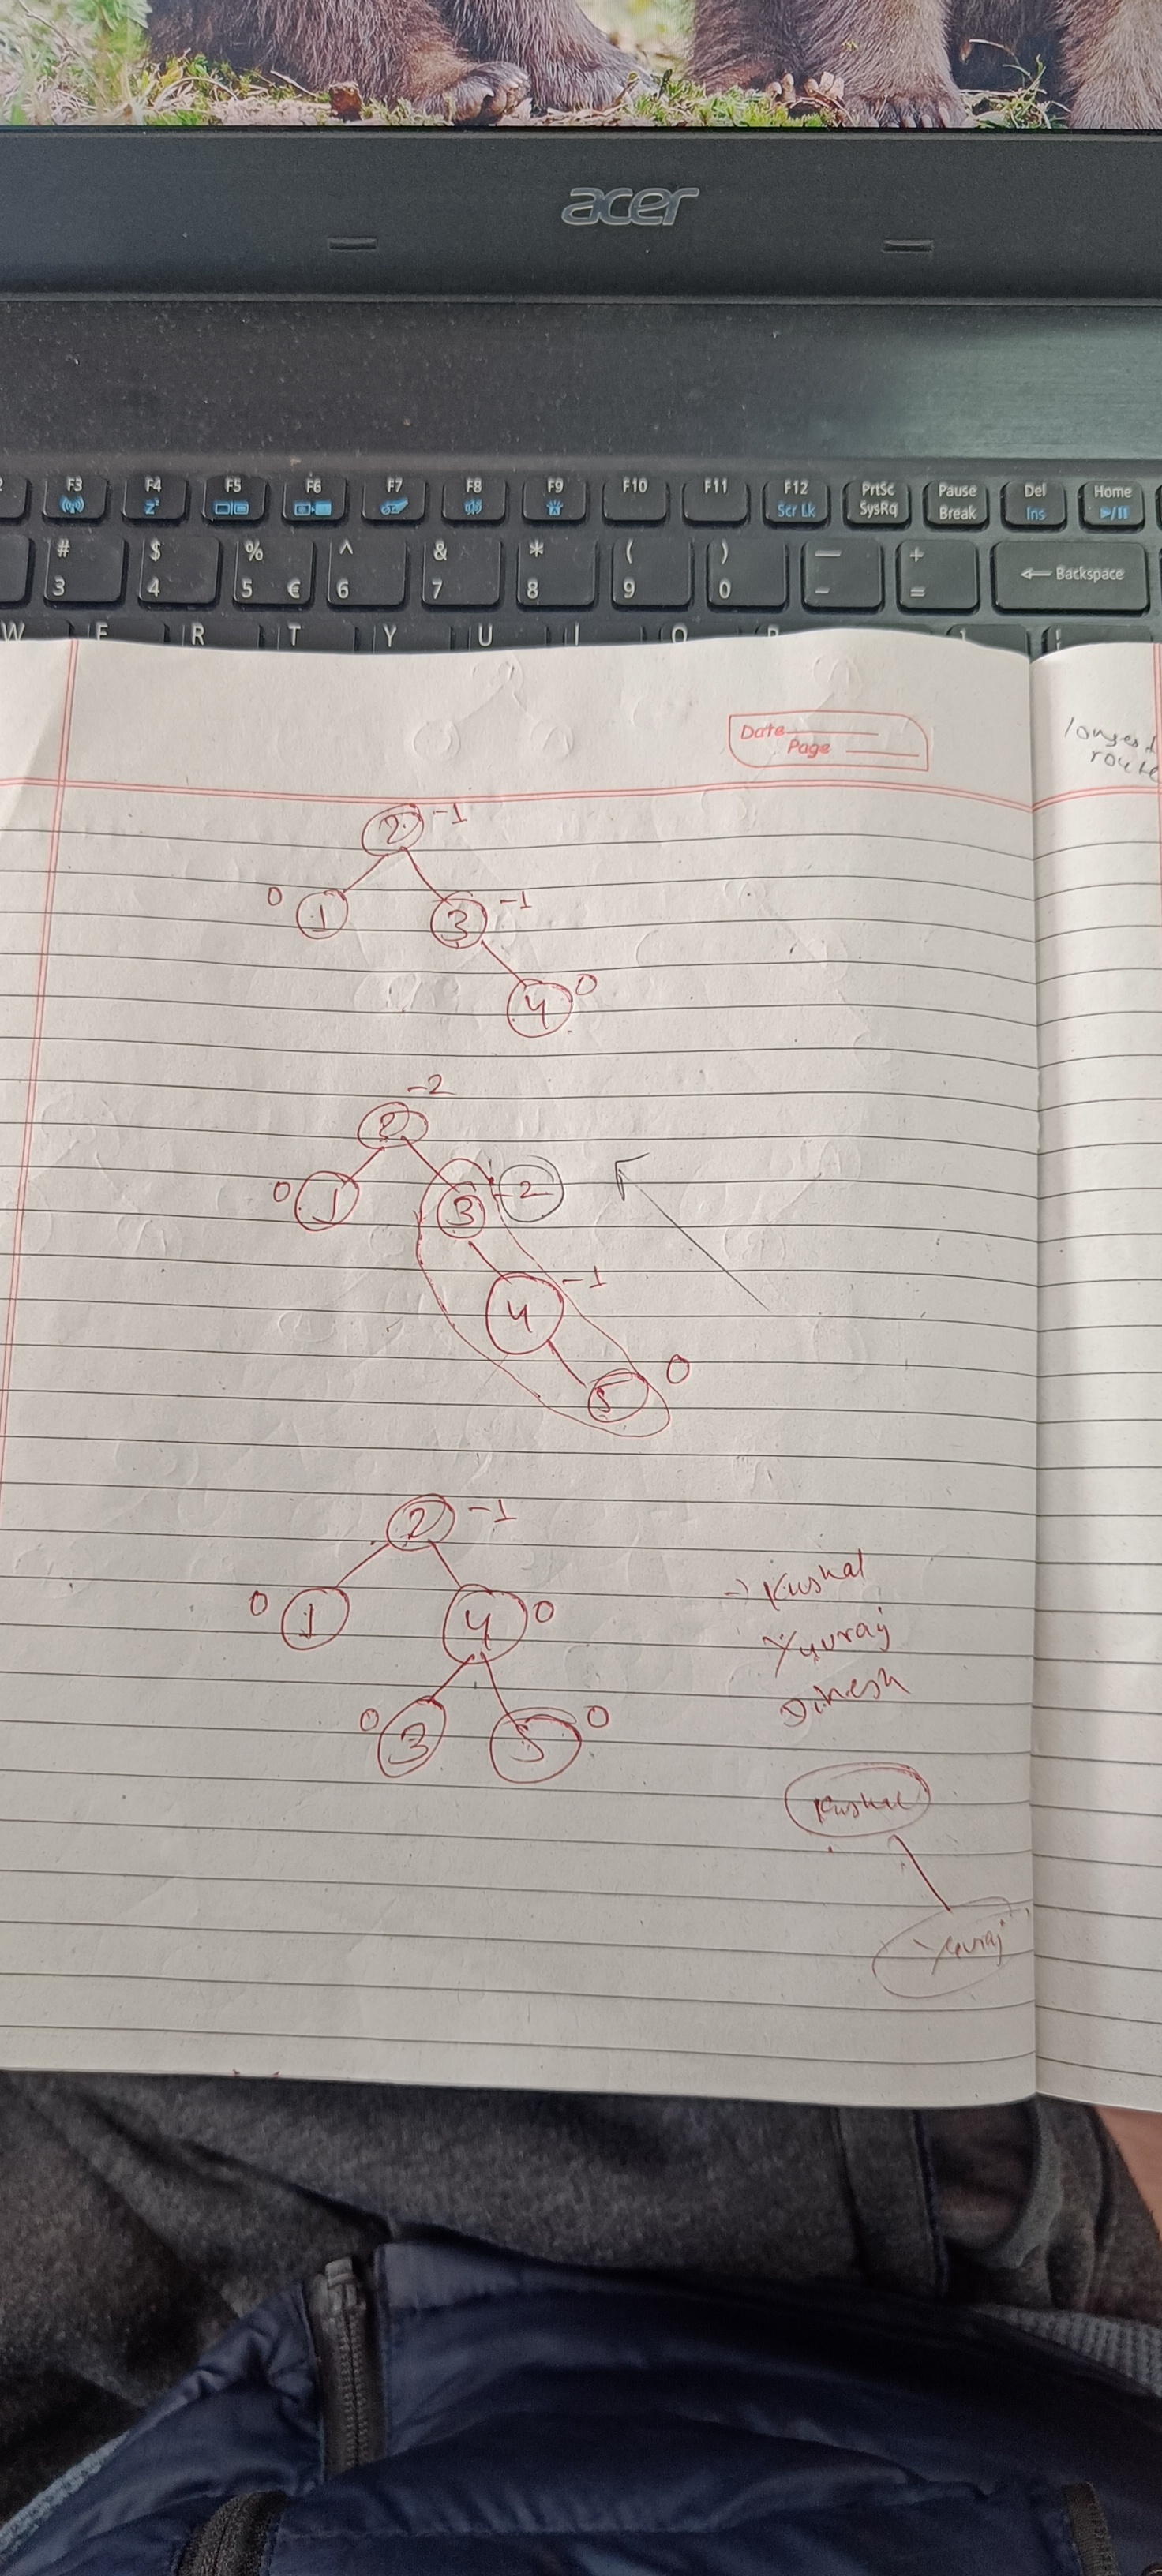 acer
F3 F4 F5 F6 F7 F8 F9 F10 F11 F12 PrtSc Pause Del Home
Scr Lk SysRq Break Ins
# $ % ^ & * ( ) — +
3 4 5 € 6 7 8 9 0 - = Backspace
W E R T Y U I O P
Date
Page
longest
route
2 -1
0 1 3 -1
4 0
-2
2
0 1 3 -2
4 -1
5 0
2 -1
0 1 4 0
0 3 5 0
-> Kushal
Yuvraj
Dinesh
Kushal
Yuvraj